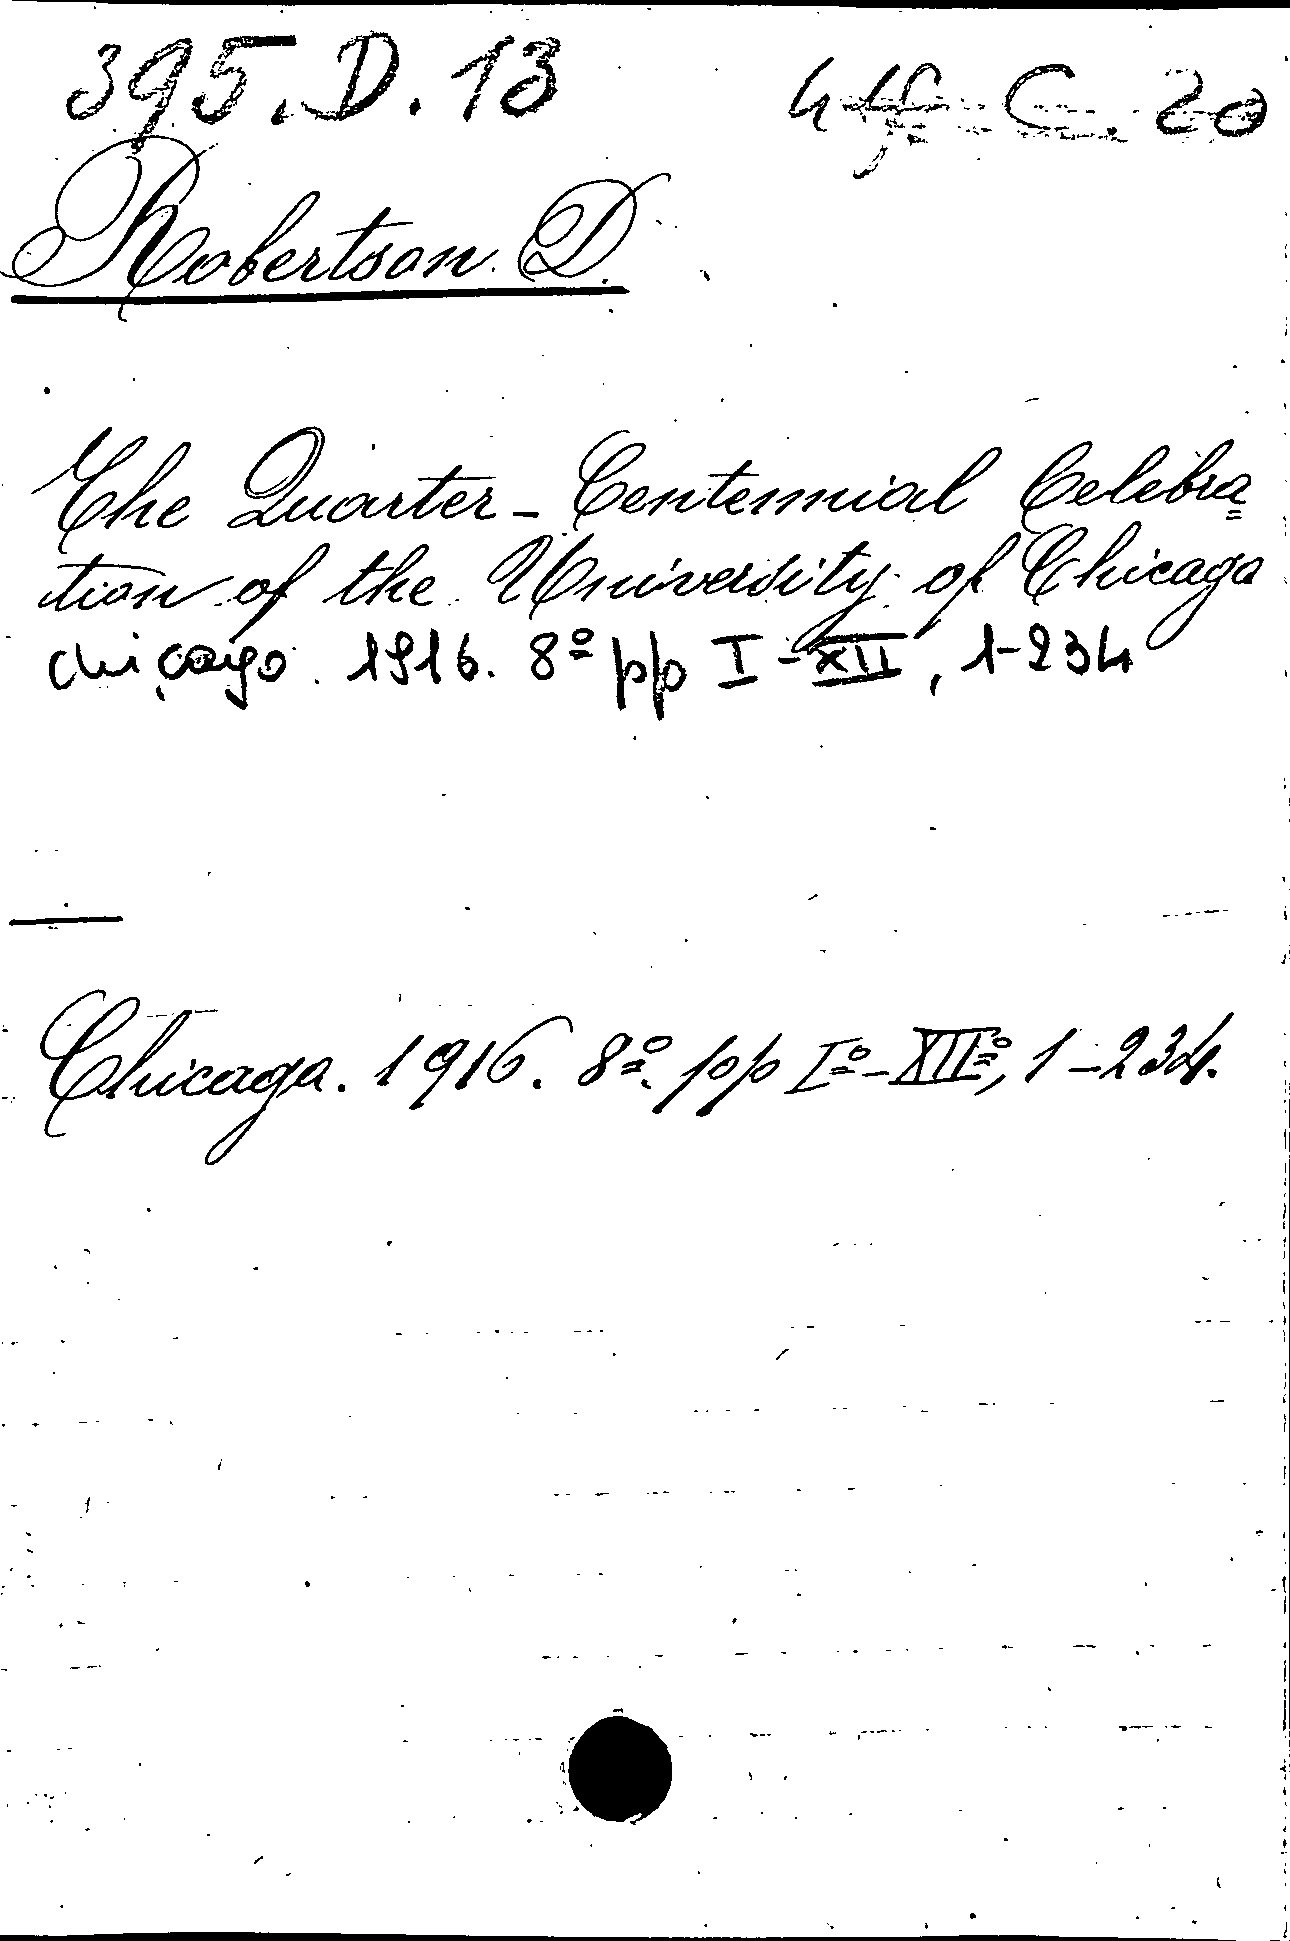 395. D. 13
C. 20
Robertson. D.
The Quarter - Centennial Celebra=
tion of the University of Chicago
Chicago. 1916. 8º pp I - XII, 1-234
Chicago. 1916. 8º. pp Iº - XIIº, 1 - 234.